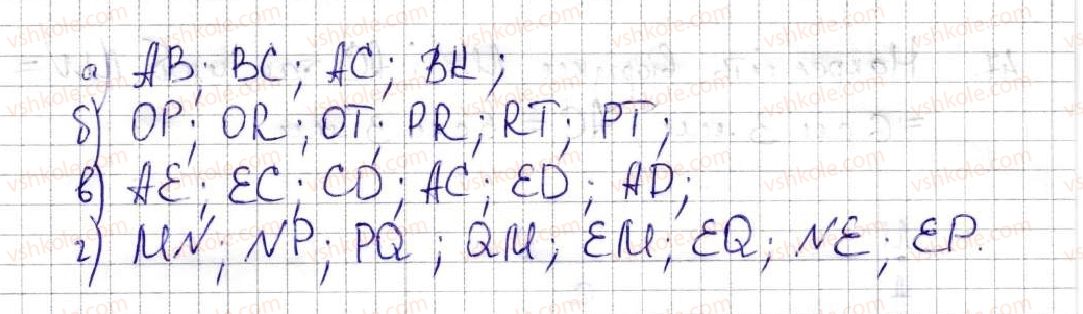 а) AB; BC; AC; BK;
б) OP; OR; OT; PR; RT; PT;
в) AE; EC; CD; AC; ED; AD;
г) MN; NP; PQ; QM; EM; EQ; NE; EP.